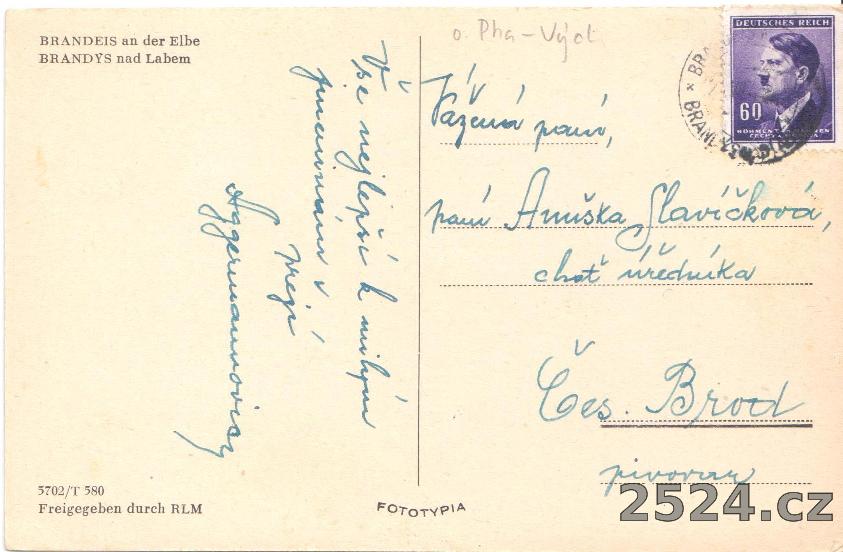 BRANDEIS an der Elbe
BRANDÝS nad Labem
o. Pha - Vých
DEUTSCHES REICH
60
BÖHMEN UND MÄHREN
ČECHY A MORAVA
Vše nejlepší k milým
jmeninám v.
přejí
Vážená paní,
paní Anuška Slavíčková,
choť úředníka
Čes. Brod
pivovar
5702/T 580
Freigegeben durch RLM
FOTOTYPIA
2524.cz